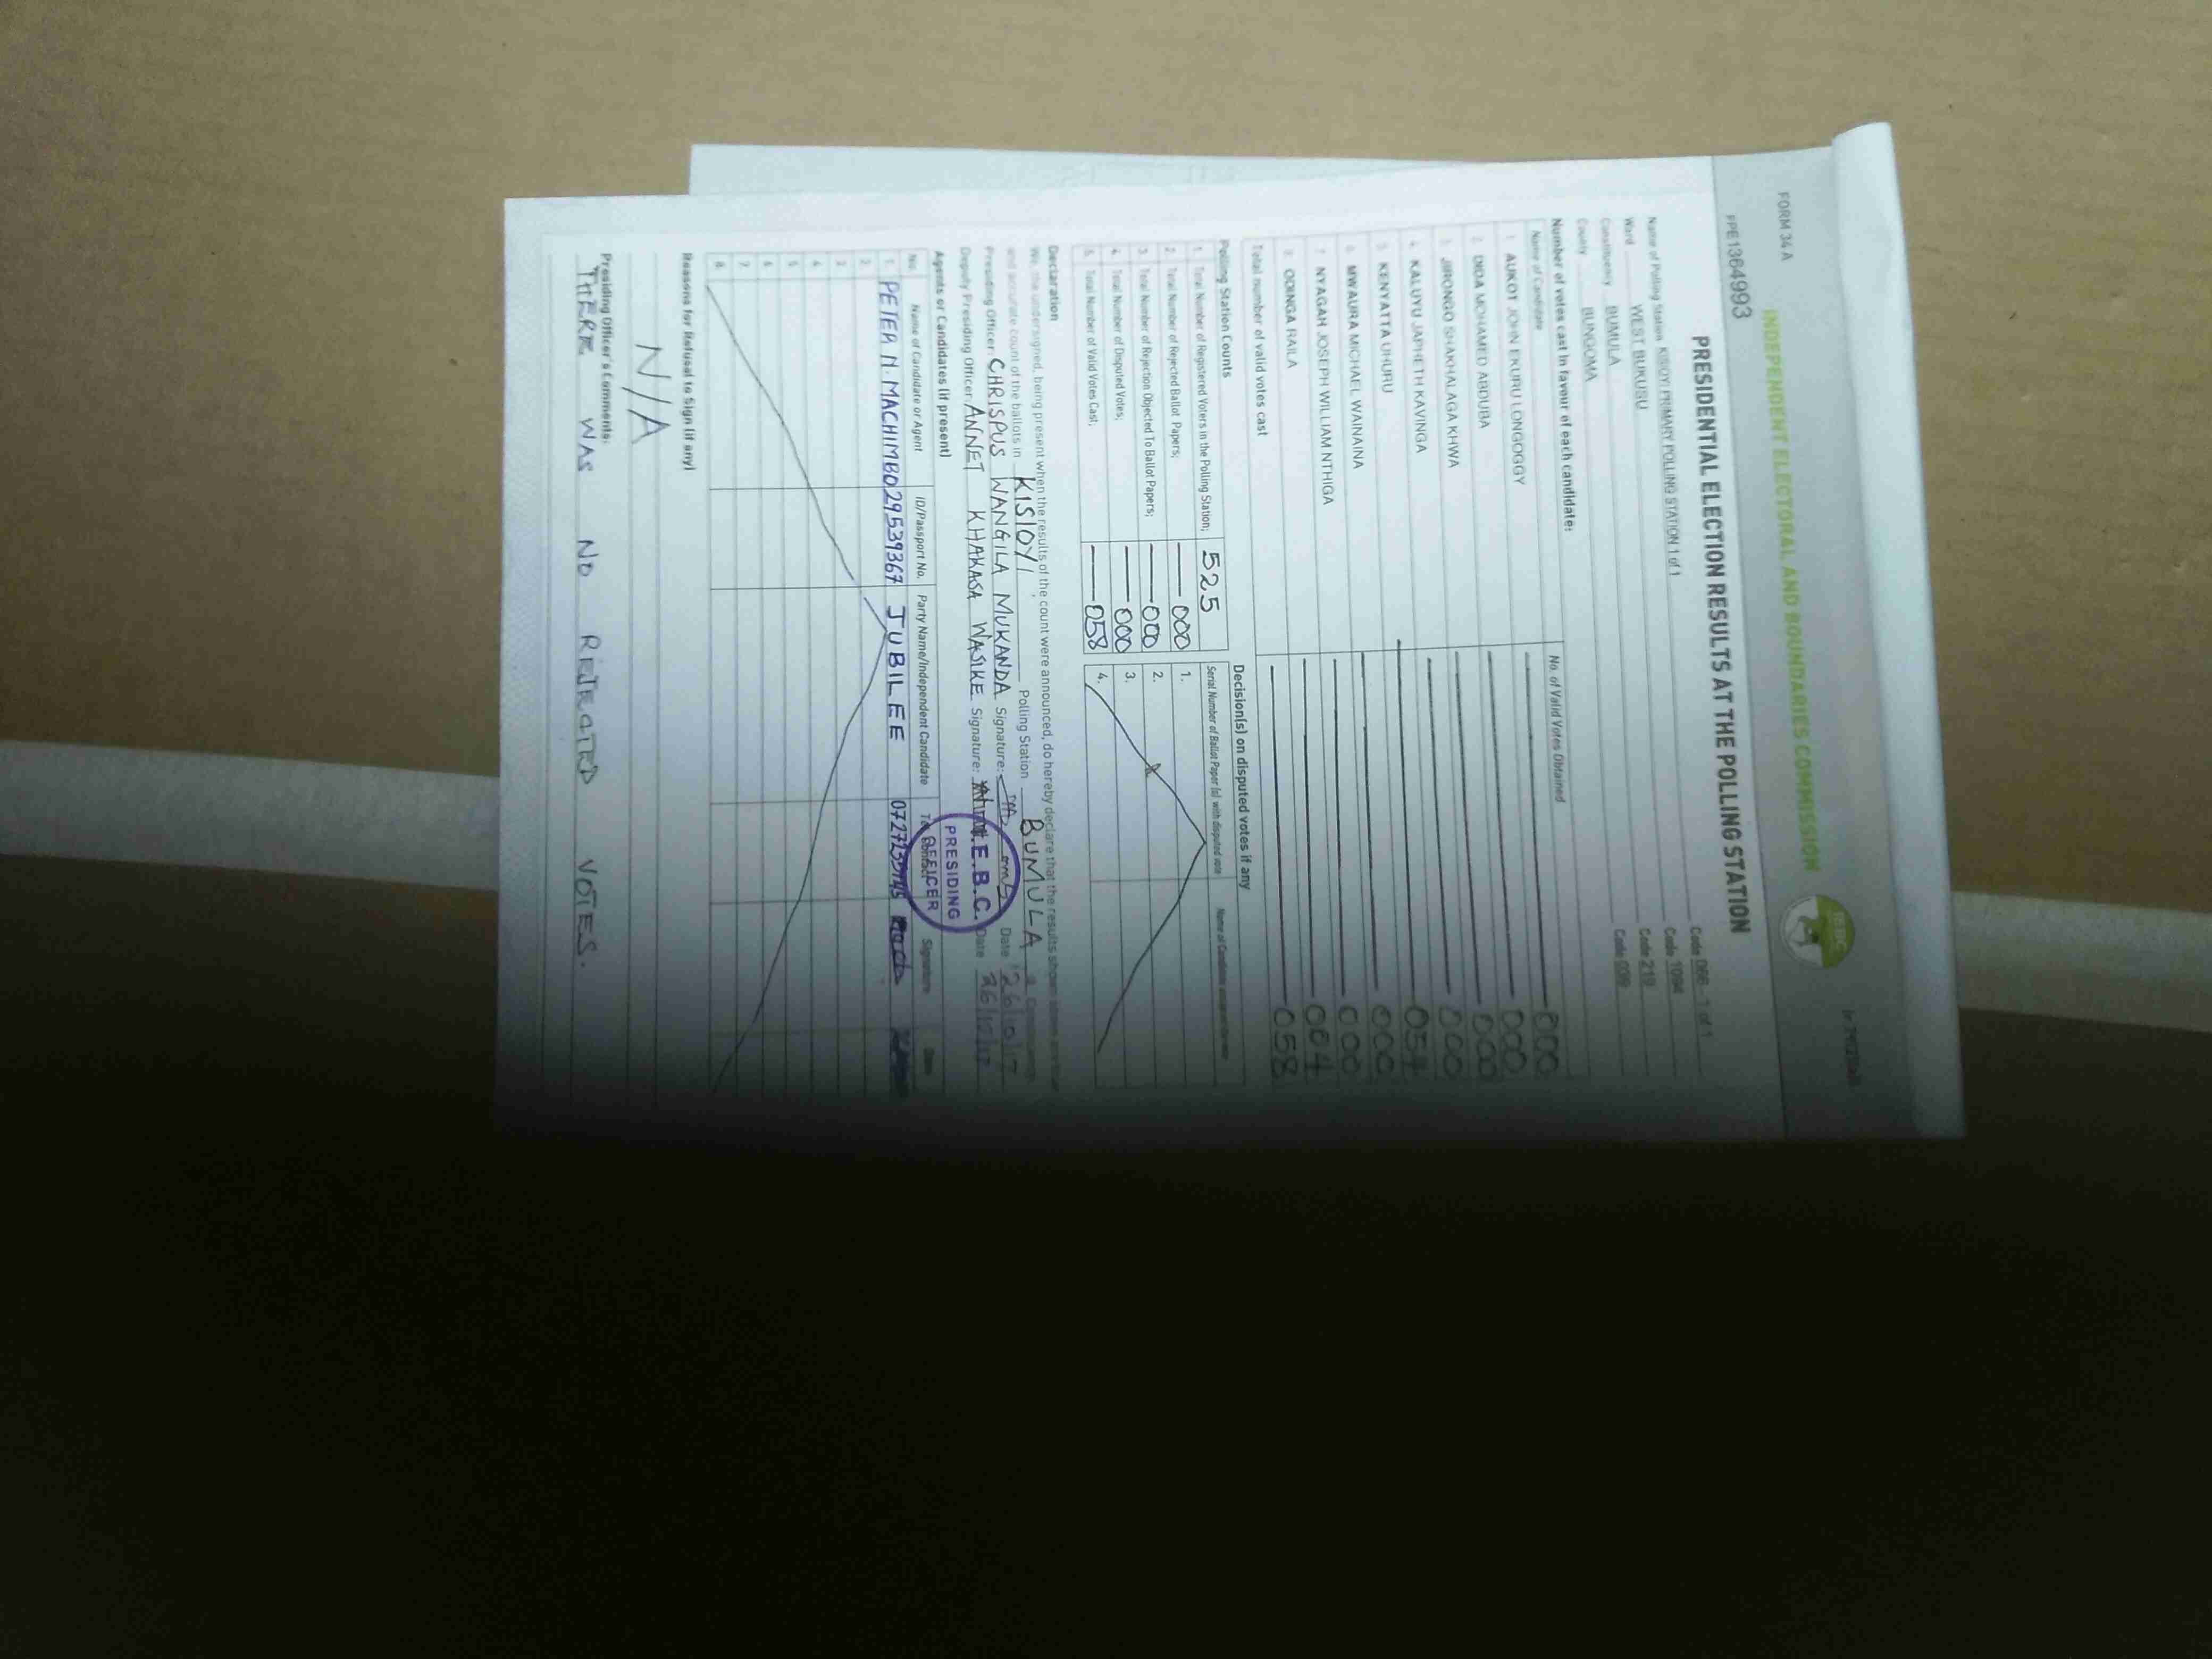 FORM 34A
INDEPENDENT ELECTORAL AND BOUNDARIES COMMISSION
IEBC
PRESIDENTIAL ELECTION RESULTS AT THE POLLING STATION
Name of Polling Station KISIOYI PRIMARY POLLING STATION 1 of 1 Code 066 - 1 of 1
Ward WEST BUKUSU Code 1094
Constituency BUMULA Code 219
County BUNGOMA Code 039
Number of votes cast in favour of each candidate:
Name of Candidate No. of Valid Votes Obtained
1. AUKOT JOHN EKURU LONGOGGY 000
2. DIDA MOHAMED ABDUBA 000
3. JIRONGO SHAKHALAGA KHWA 000
4. KALUYU JAPHETH KAVINGA 000
5. KENYATTA UHURU 054
6. MWAURA MICHAEL WAINAINA 000
7. NYAGAH JOSEPH WILLIAM NTHIGA 000
8. ODINGA RAILA 004
Total number of valid votes cast 058
Polling Station Counts
1. Total Number of Registered Voters in the Polling Station; 525
2. Total Number of Rejected Ballot Papers; 000
3. Total Number of Rejection Objected To Ballot Papers; 000
4. Total Number of Disputed Votes; 000
5. Total Number of Valid Votes Cast; 058
Decision(s) on disputed votes if any
Serial Number of Ballot Paper (s) with disputed vote
1.
2.
3.
4.
Declaration
We, the undersigned, being present when the results of the count were announced, do hereby declare that the results shown above are true
and accurate count of the ballots in KISIOYI Polling Station BUMULA Constituency
Presiding Officer: CHRISPUS WANGILA MUKANDA Signature: Date 26/10/17
Deputy Presiding Officer: ANNET KHAKASA WASIKE Signature: Date 26/10/17
I.E.B.C.
PRESIDING
OFFICER
Agents or Candidates (if present)
No. Name of Candidate or Agent ID/Passport No. Party Name/Independent Candidate Tel. Contact Signature Date
1. PETER N. MACHIMBO 29539367 JUBILEE
2.
3.
4.
5.
6.
7.
8.
Reasons for Refusal to Sign (if any)
N/A
Presiding Officer's Comments:
THERE WAS NO REJECTED VOTES.